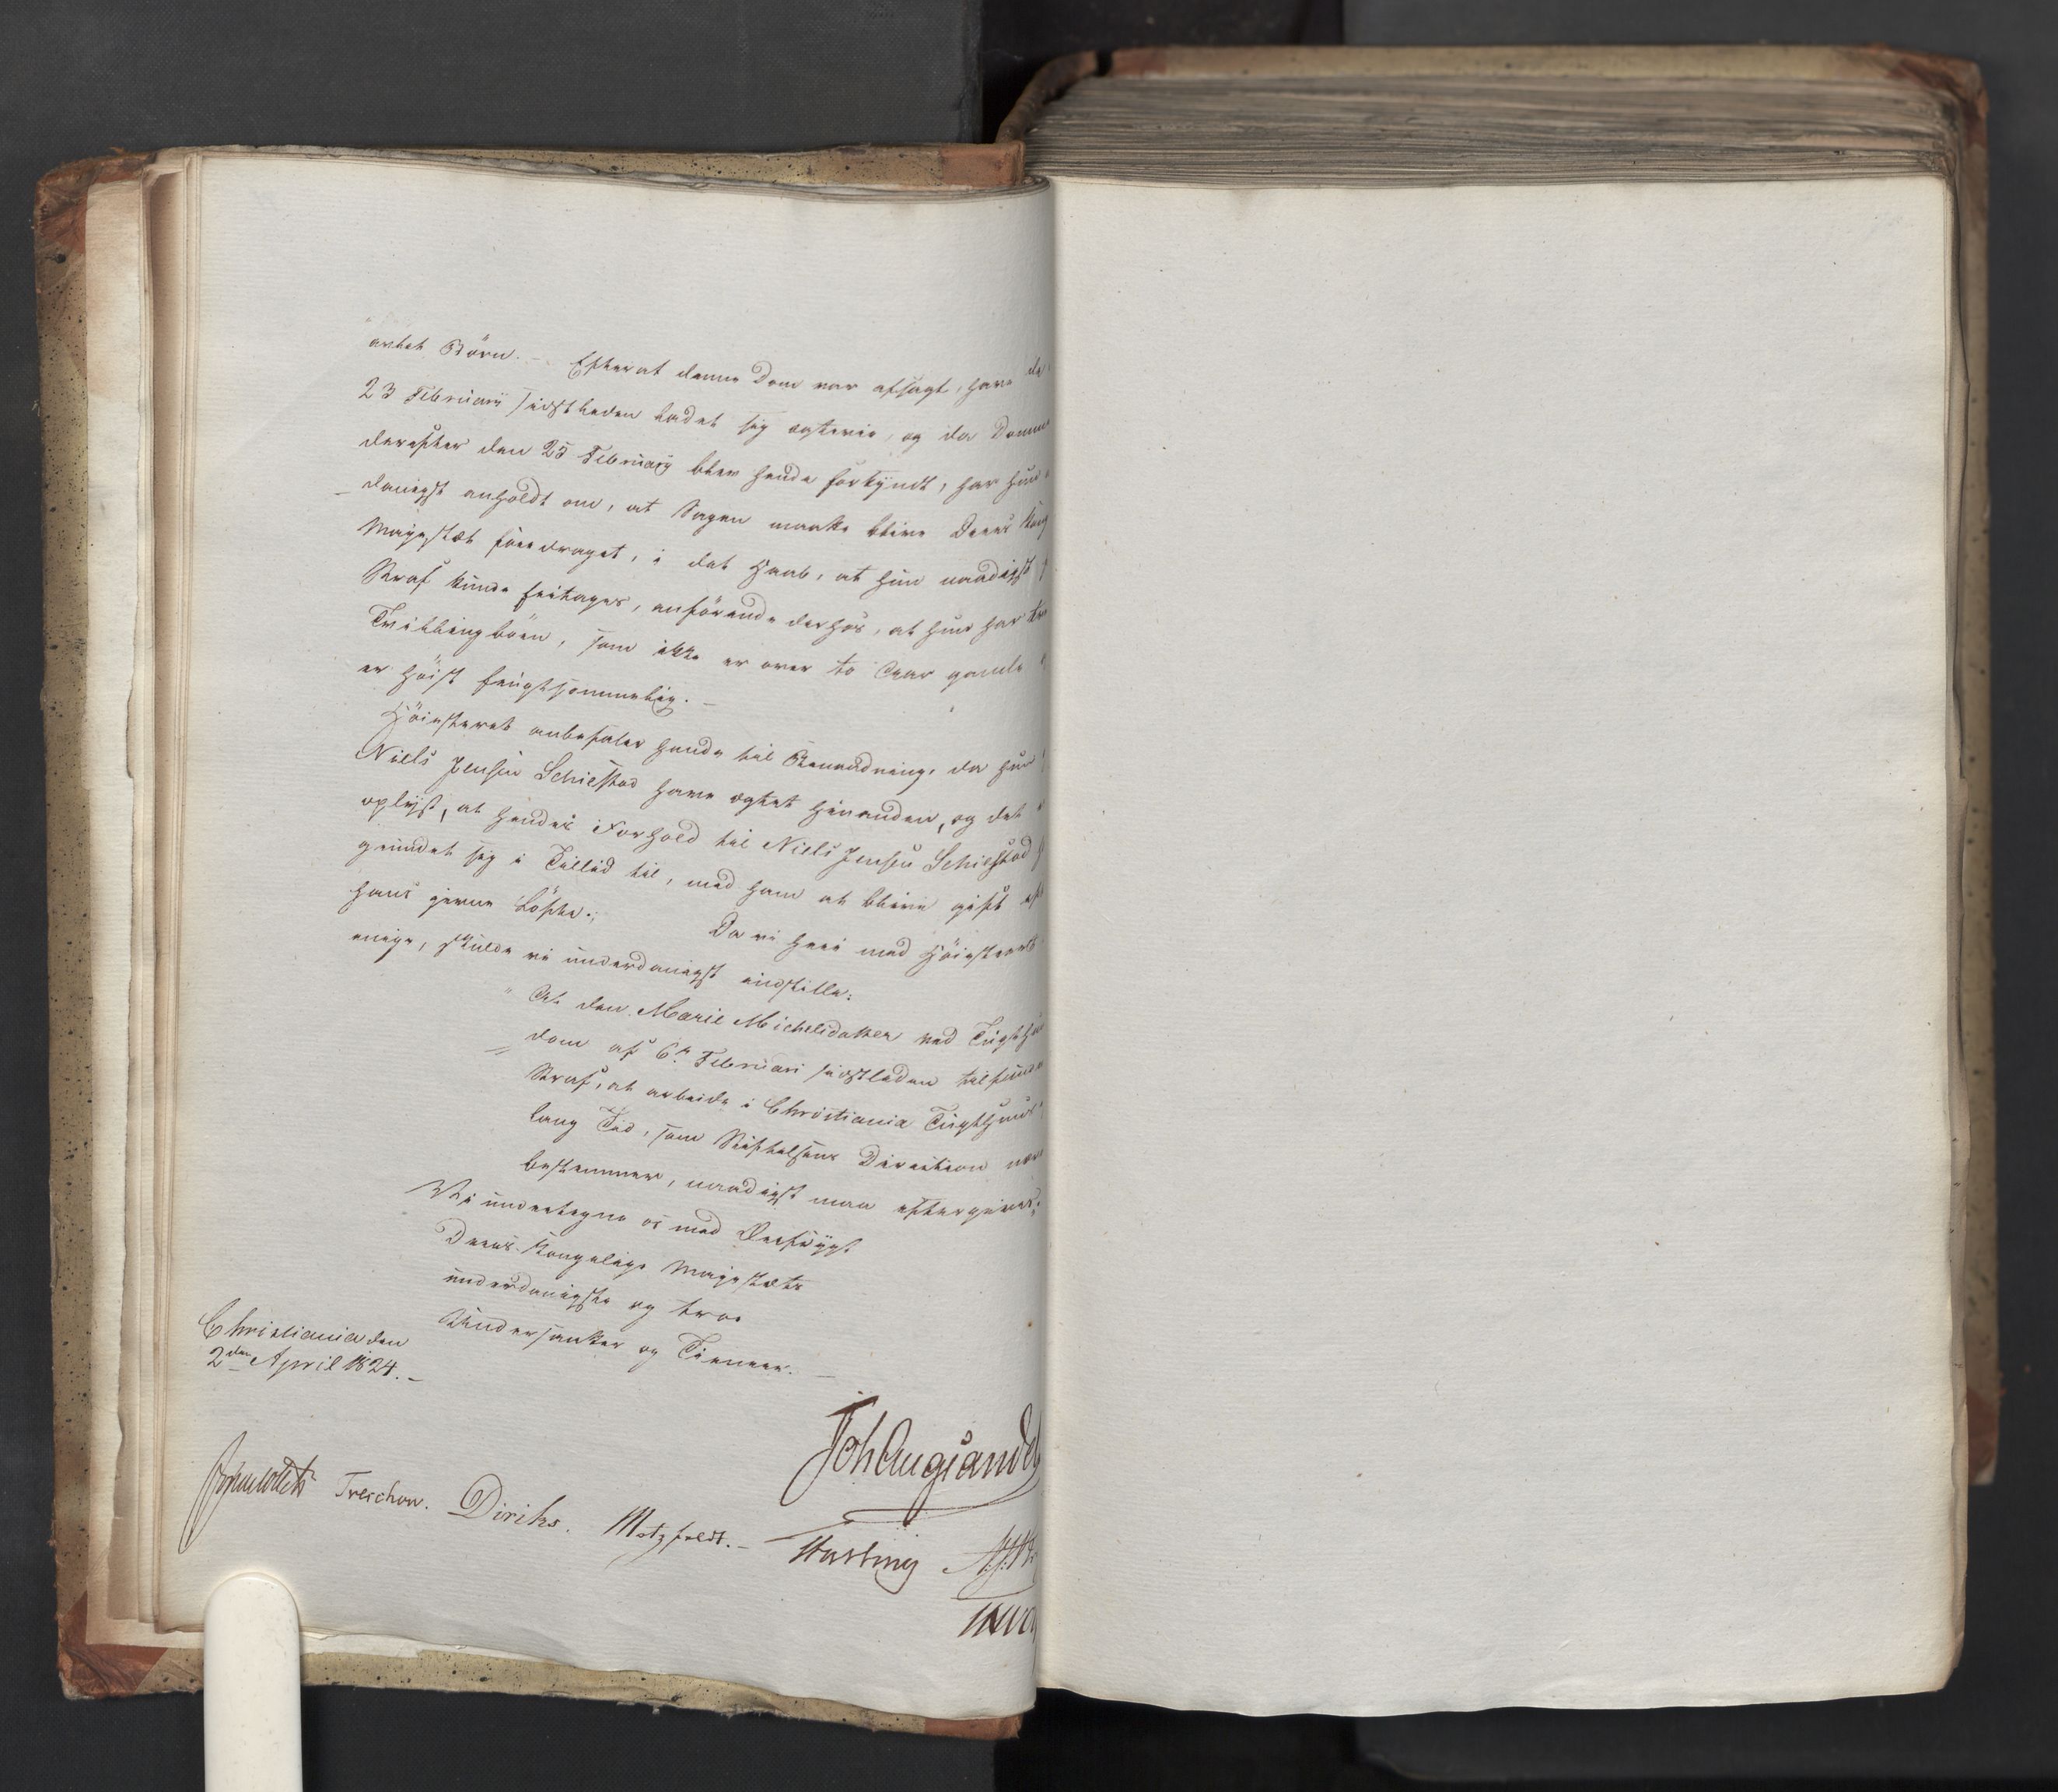 avlet Börn. – Efterat denne Dom var afsagt, have de
23 Februarii sidstleden ladet sig ægtevie, og da Dommen
derefter den 25 February blev hende forkyndt, har hun
danigst anholdt om, at Sagen maatte blive Deres Kong
Majestæt foredraget, i det Haab, at hun naadigst
Straf kunde fritages, anförende derhos, at hun har
Tvillingbörn, som ikke er over to Aar gamle
er höist frugtsommelig. –
Höiesteret anbefaler hende til Benaadning, da hun
Niels Jensen Schiefstad have ægtet hinanden, og det
oplyst, at hendes Forhold til Niels Jensen Schiefstad
grundet sig i Tillid til, med ham at blive gift
hans givne Löfte.
Da vi heri med Höiesteret
enige, skulde vi underdanigst indstille:
"At den Marie Michelsdatter ved
Dom af 6te Februari sidstleden
Straf, at arbeide i Christiania Tugthuus
lang Tid, som Stiftelsens Direction
bestemmer, naadigst maa eftergives.
Vi undertegne os med Dre
Deres Kongelige Majestæts
underdanigste og troe
Undersaatter og Tienere. –
Christiania den
2den April 1824. –
Joh Aug Sandels
Treschow. Diriks. Motzfeldt. –